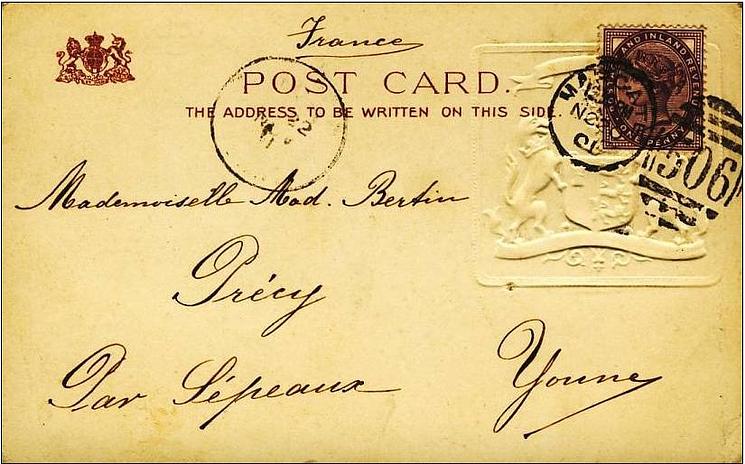 France
POST CARD.
THE ADDRESS TO BE WRITTEN ON THIS SIDE.
POSTAGE AND INLAND REVENUE
ONE PENNY
MARGATE
506
Mademoiselle Mad. Bertin
Précy
Par Sépeaux
Yonne